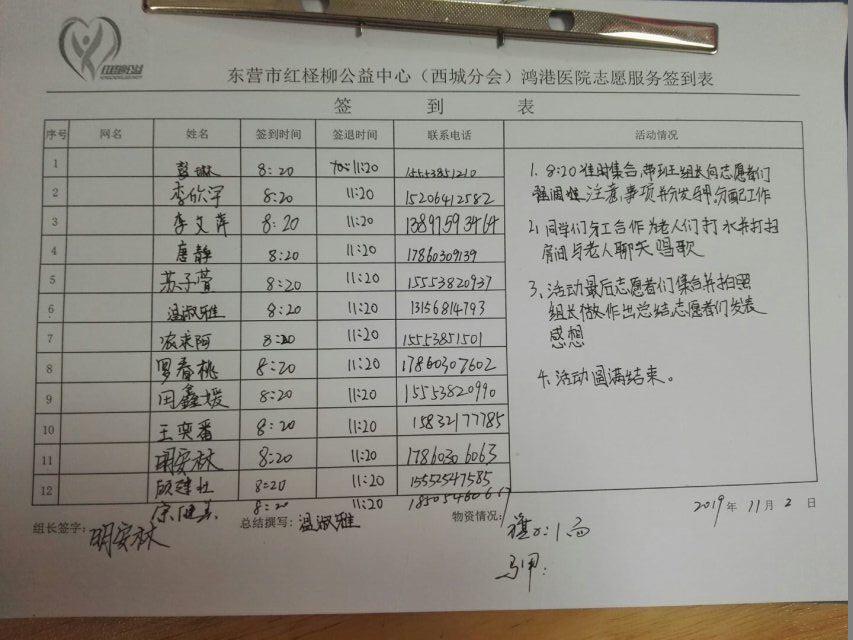 东营市红柽柳公益中心（西城分会）鸿港医院志愿服务签到表
签 到 表
序号 网名 姓名 签到时间 签退时间 联系电话 活动情况
1 彭琳 8:20 11:20 15553851210
2 李欣宇 8:20 11:20 15206412582
3 李文萍 8:20 11:20 13897593464
4 唐静 8:20 11:20 17860309139
5 苏子萱 8:20 11:20 15553820937
6 温淑雅 8:20 11:20 13156814793
7 8:20 11:20 15553851501
8 罗春桃 8:20 11:20 17860307602
9 田鑫媛 8:20 11:20 15553820990
10 王奕番 8:20 11:20 15832177785
11 明安林 8:20 11:20 17860306063
12 顾建壮 8:20 11:20 15552547585
8:20 11:20
1. 8:20准时集合,带班组长向志愿者们
强调注意事项并分发马甲,分配工作
2. 同学们分工合作为老人们打水并打扫
房间与老人聊天唱歌
3、活动最后志愿者们集合并拍照
组长做作出总结志愿者们发表
感想
4. 活动圆满结束。
2019年 11月 2 日
组长签字: 明安林 总结撰写: 温淑雅 物资情况: 旗子:1面
马甲: